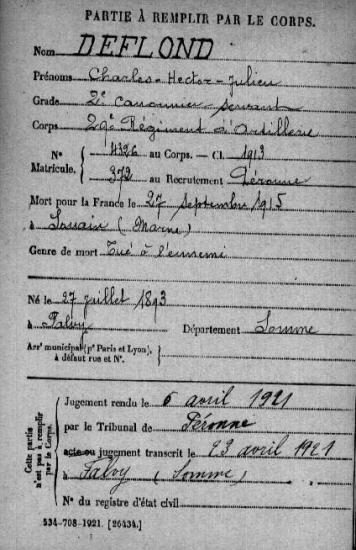 PARTIE À REMPLIR PAR LE CORPS.
Nom DEFLOND
Prénoms Charles-Hector-Julien
Grade 2e canonnier-servant
Corps 29e Régiment d'Artillerie
N° 4326 au Corps. — Cl. 1913
Matricule. 372 au Recrutement Péronne
Mort pour la France le 27 septembre 1915
à (Marne)
Genre de mort Tué à l'ennemi
Né le 27 juillet 1893
à Falvy Département Somme
Arrt municipal (pr Paris et Lyon), à défaut rue et N°.
Cette partie n'est pas à remplir par le Corps.
Jugement rendu le 6 avril 1921
par le Tribunal de Péronne
acte ou jugement transcrit le 23 avril 1921
à Falvy (Somme)
N° du registre d'état civil
534-708-1921. [26434.]